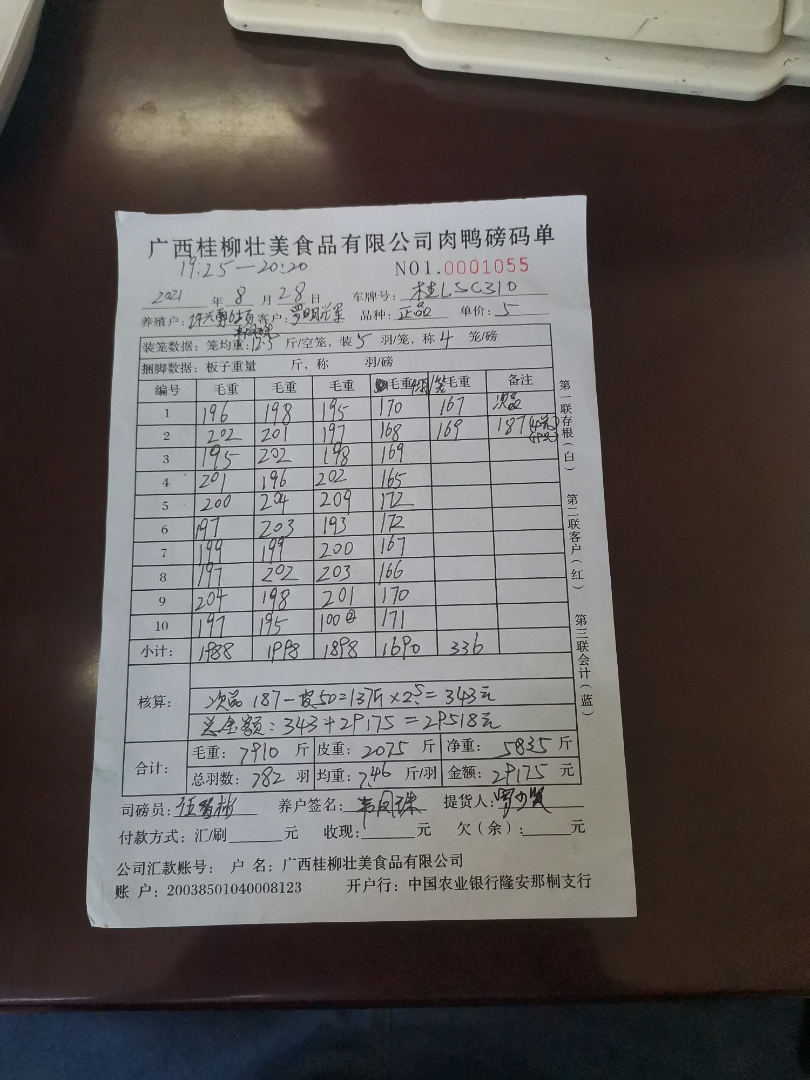 广西桂柳壮美食品有限公司肉鸭磅码单
19:25—20:20
NO1.0001055
2021 年 8 月 28 日 车牌号: 桂LSC310
养殖户: 客户: 品种: 正品 单价: 5
装笼数据: 笼均重: 12.5 斤/空笼, 装 5 羽/笼, 称 4 笼/磅
捆脚数据: 板子重量 斤, 称 羽/磅
编号 毛重 毛重 毛重 毛重 毛重 备注
1 196 198 195 170 167 次品
2 202 201 197 168 169 187
3 195 202 198 169
4 201 196 202 165
5 200 204 209 172
6 197 203 193 172
7 199 199 200 167
8 197 202 203 166
9 204 198 201 170
10 197 195 100 171
小计: 1988 1998 1898 1690 336
核算:
次品 187-皮50=137斤×2.5=343元
总金额: 343+29175=29518元
合计: 毛重: 7910 斤 皮重: 2075 斤 净重: 5835 斤
总羽数: 782 羽 均重: 7.46 斤/羽 金额: 29175 元
司磅员: 养户签名: 韦凤珠 提货人:
付款方式: 汇/刷 元 收现: 元 欠(余): 元
公司汇款账号: 户 名: 广西桂柳壮美食品有限公司
账 户: 20038501040008123 开户行: 中国农业银行隆安那桐支行
第一联存根(白)
第二联客户(红)
第三联会计(蓝)